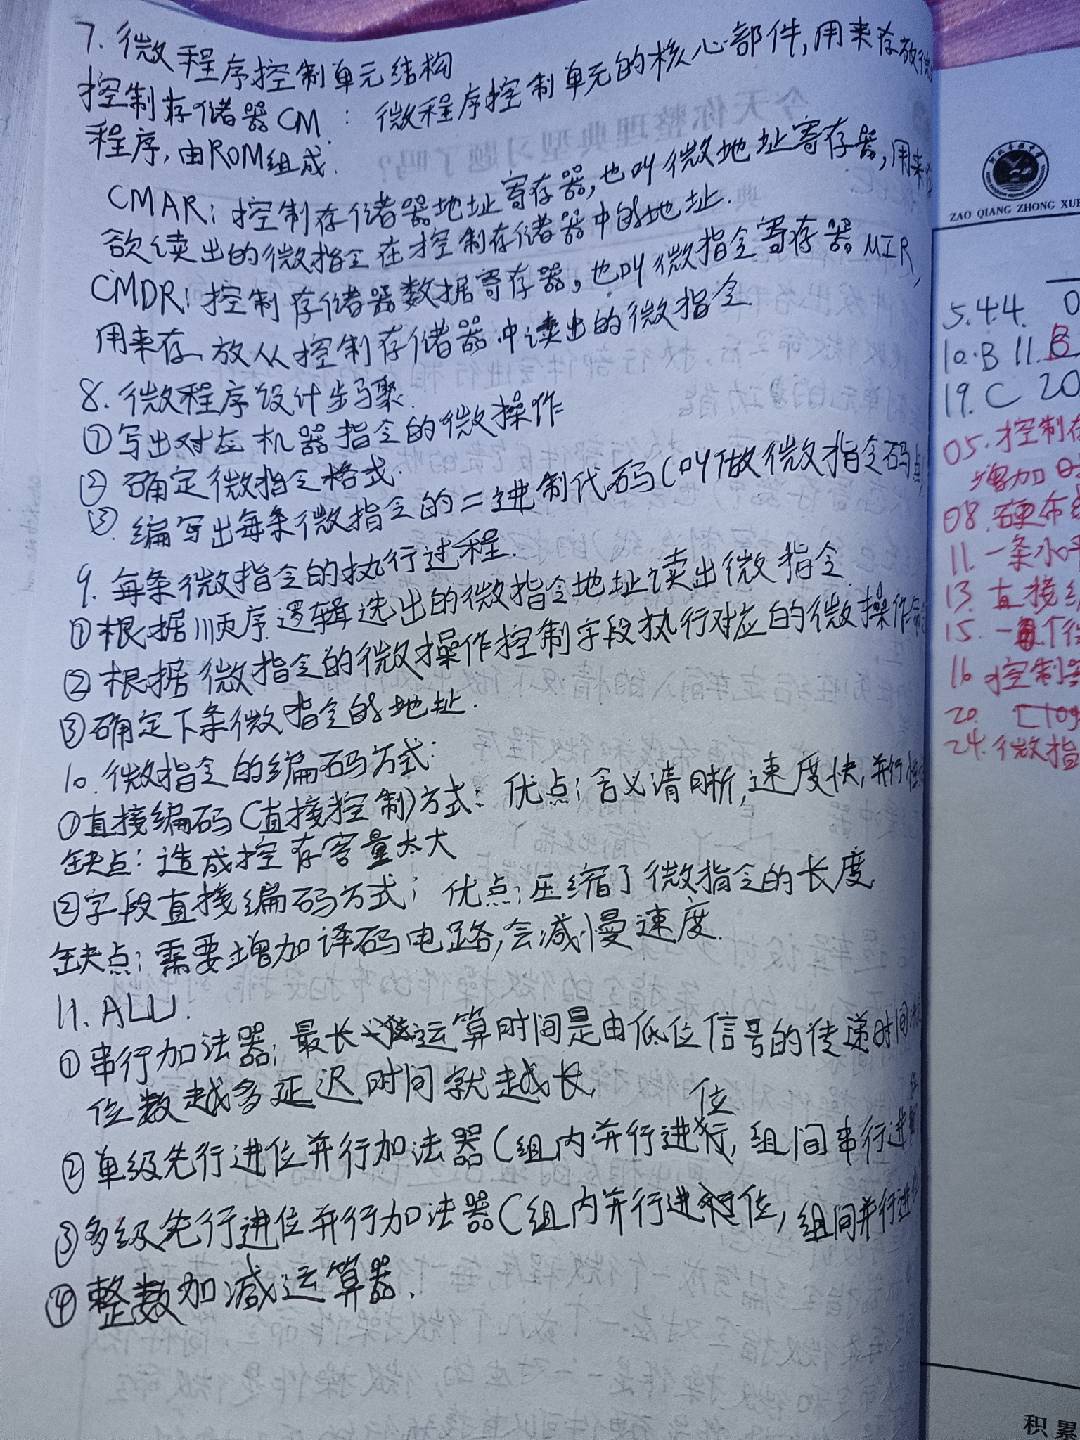 7. 微程序控制单元结构
控制存储器CM：微程序控制单元的核心部件,用来存放微
程序,由ROM组成.
CMAR：控制存储器地址寄存器,也叫微地址寄存器,用来
欲读出的微指令在控制存储器中的地址.
CMDR：控制存储器数据寄存器,也叫微指令寄存器MIR,
用来存放从控制存储器中读出的微指令.
8. 微程序设计步骤.
①写出对应机器指令的微操作
②确定微指令格式.
③编写出每条微指令的二进制代码(叫做微指令码点
9. 每条微指令的执行过程.
①根据顺序逻辑选出的微指令地址读出微指令.
②根据微指令的微操作控制字段执行对应的微操作命
③确定下条微指令的地址.
10. 微指令的编码方式：
①直接编码(直接控制)方式：优点：含义清晰,速度快,并行性
缺点：造成控存容量太大
②字段直接编码方式：优点：压缩了微指令的长度
缺点：需要增加译码电路,会减慢速度.
11. ALU.
①串行加法器：最长运算时间是由低位信号的传递时间
位数越多延迟时间就越长
②单级先行进位并行加法器(组内并行进位,组间串行进
③多级先行进位并行加法器(组内并行进位,组间并行进
④整数加减运算器.
ZAO QIANG ZHONG XUE
5.44.
10.B 11.B
19.C 20
05.控制存
增加
08.硬布线
11.一条水平
13.直接编
15.一个微
16 控制器
20.
24.微指
积累
今天你整理典型习题了吗？